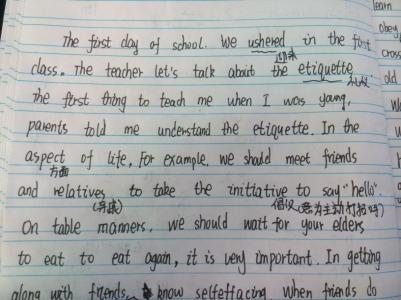 learn
The first day of school. We ushered in the first
obey
迎来
cross
class. The teacher let's talk about the etiquette
礼仪
old
The first thing to teach me when I was young,
parents told me understand the etiquette. In the
aspect of life, For example, we should meet friends
方面
and relatives to take the initiative to say "hello".
(亲戚)
倡议(意为主动打招呼)
On table manners, we should wait for your elders
to eat to eat again, it is very important. In getting
along with friends, know selfeffacing. When friends do